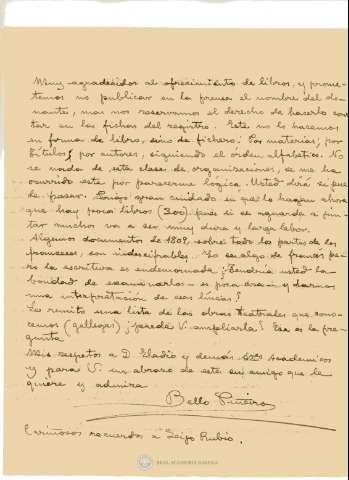 Muy agradecidos al ofrecimiento de libros, y prome-
temos no publicar en la prensa el nombre del do-
nante, mas nos reservamos el derecho de hacerlo cons
tar en las fichas del registro. Este no lo hacemos
en forma de libro, sino de fichero: Por materias, por
títulos, por autores, siguiendo el orden alfabético. No
se nada de esta clase de organizaciones, se me ha
ocurrido este por parecerme lógica. Usted dirá si pue
de pasar. gran cuidado en que lo hagan ahora
que hay pocos libros (200) pues si se aguarda a jun-
tar muchos va a ser muy dura y larga labor.
Algunos documentos de 1809, sobre todo los partes de los
franceses, son indescifrables. Yo se algo de francés pe
ro la escritura es endemoniada; ¿Tendría usted la
bondad de examinarlos y darnos
una interpretación de esas líneas?
Les remito una lista de las obras teatrales que cono-
cemos (gallegas) ¿puede V. ampliarla? Esa es la pre-
gunta.
Mis respetos a D. Eladio y demás Académicos
y para V. un abrazo de este su amigo que le
quiere y admira
Bello Piñeiro
Cariñosos recuerdos a Rubio.
REAL ACADEMIA GALEGA